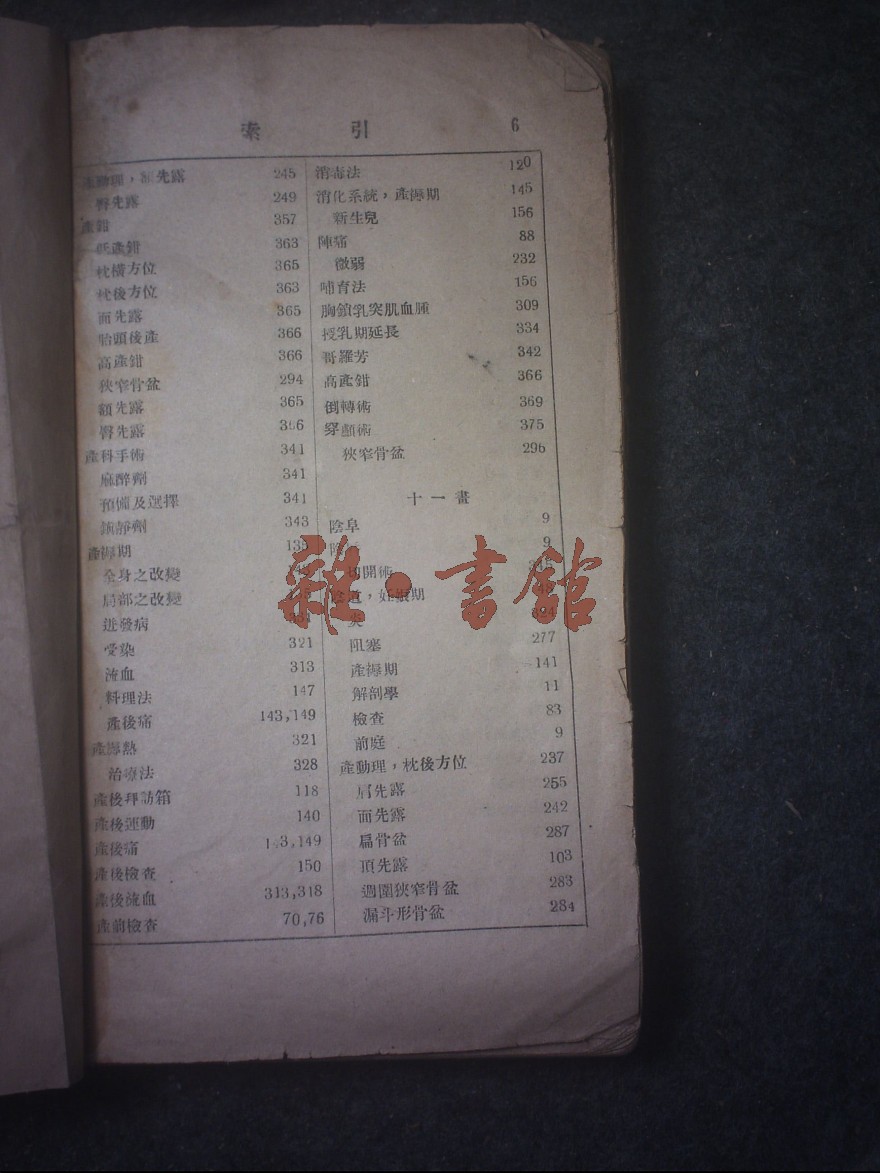 索引 6
產動理，額先露 245
臀先露 249
產鉗 357
低產鉗 363
枕橫方位 365
枕後方位 363
面先露 365
胎頭後產 366
高產鉗 366
狹窄骨盆 294
額先露 365
臀先露 366
產科手術 341
麻醉劑 341
預備及選擇 341
鎮靜劑 343
產褥期 135
全身之改變
局部之改變
迸發病
受染 321
流血 313
料理法 147
產後痛 143,149
產褥熱 321
治療法 328
產後拜訪箱 118
產後運動 140
產後痛 143,149
產後檢查 150
產後流血 313,318
產前檢查 70,76
消毒法 120
消化系統，產褥期 145
新生兒 156
陣痛 88
微弱 232
哺育法 156
胸鎖乳突肌血腫 309
授乳期延長 334
哥羅芳 342
高產鉗 366
倒轉術 369
穿顱術 375
狹窄骨盆 296
十一畫
陰阜 9
9
切開術
陰道，妊娠期
炎
阻塞 277
產褥期 141
解剖學 11
檢查 83
前庭 9
產動理，枕後方位 237
肩先露 255
面先露 242
扁骨盆 287
頂先露 103
週圍狹窄骨盆 283
漏斗形骨盆 284
雜·書館